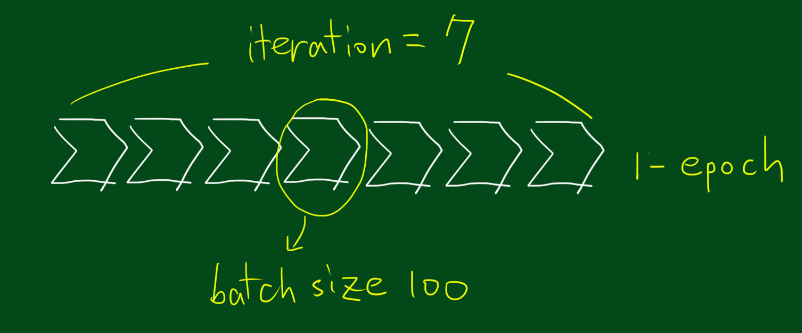 iteration = 7
1 - epoch
batch size 100